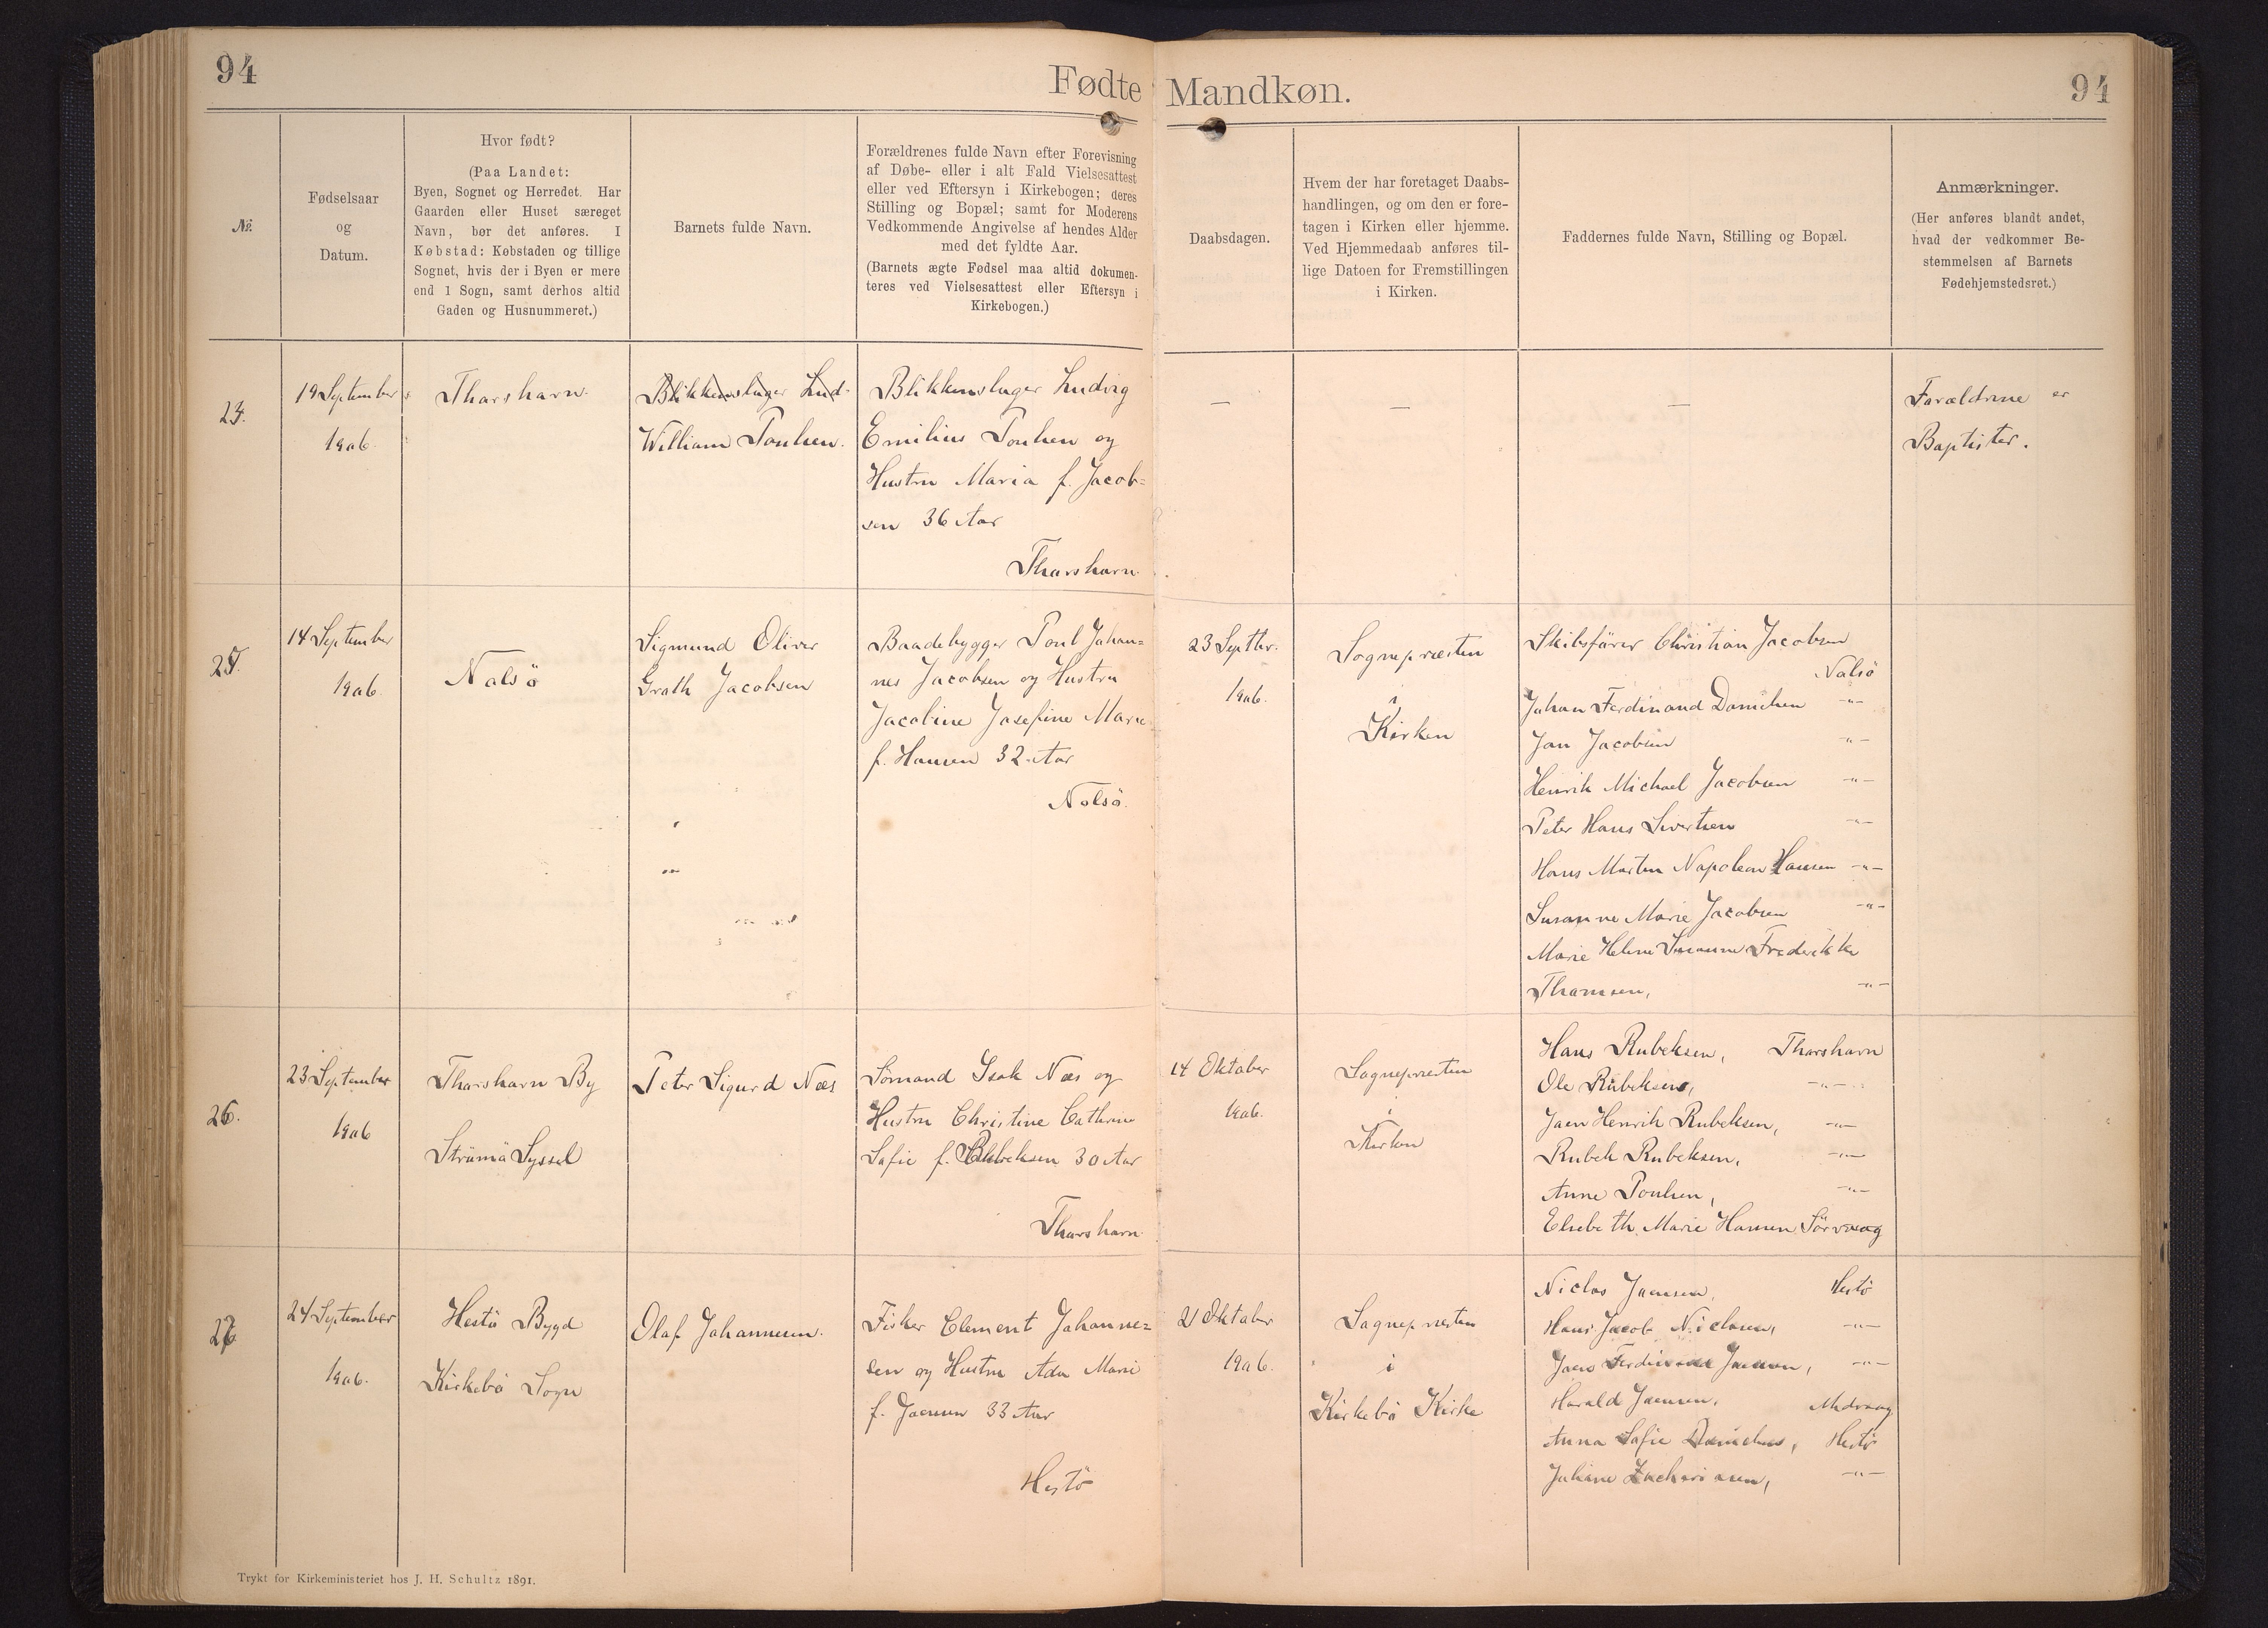 94
Fødte Mandkøn.
94
№.
Fødselsaar
og
Datum.
Hvor født?
(Paa Landet:
Byen, Sognet og Herredet. Har
Gaarden eller Huset særeget
Navn, bør det anføres. I
Købstad: Købstaden og tillige
Sognet, hvis der i Byen er mere
end 1 Sogn, samt derhos altid
Gaden og Husnummeret.)
Barnets fulde Navn.
Forældrenes fulde Navn efter Forevisning
af Døbe- eller i alt Fald Vielsesattest
eller ved Eftersyn i Kirkebogen; deres
Stilling og Bopæl; samt for Moderens
Vedkommende Angivelse af hendes Alder
med det fyldte Aar.
(Barnets ægte Fødsel maa altid dokumen-
teres ved Vielsesattest eller Eftersyn i
Kirkebogen.)
Daabsdagen.
Hvem der har foretaget Daabs-
handlingen, og om den er fore-
tagen i Kirken eller hjemme.
Ved Hjemmedaab anføres til-
lige Datoen for Fremstillingen
i Kirken.
Faddernes fulde Navn, Stilling og Bopæl.
Anmærkninger.
(Her anføres blandt andet,
hvad der vedkommer Be-
stemmelsen af Barnets
Fødehjemstedsret.)
24.
19 September
1906.
Thorshavn.
Blikkenslager Lud-
William Poulsen.
Blikkenslager Ludvig
Emilius Poulsen og
Hustru Maria f. Jacob=
sen 36 Aar
Thorshavn.
—
—
—
Forældrene er
Baptister.
25.
14 September
1906.
Nolsö
Sigmund Oliver
Grath Jacobsen
Baadebygger Poul Johan=
nes Jacobsen og Hustru
Jacobine Josefine Marie
f. Hansen 32 Aar
Nolsö.
23 Septbr.
1906.
Sognepræsten
i
Kirken
Skibsfører Christian Jacobsen
Nolsö
Johan Ferdinand Danielsen -"-
Jon Jacobsen -"-
Henrik Michael Jacobsen -"-
Peter Hans Sivertsen -"-
Hans Morten Napoleon Hansen -"-
Susanne Marie Jacobsen -"-
Marie Helene Susanne Frederikke
Thomsen, -"-
26.
23 September
1906
Thorshavn By
Strömö Syssel
Peter Sigurd Næs
Sömand Isak Næs og
Hustru Christine Cathrine
Sofie f. Rubeksen 30 Aar
Thorshavn
14 Oktober
1906.
Sognepræsten
i
Kirken
Hans Rubeksen, Thorshavn
Ole Rubeksen, -"-
Joen Henrik Rubeksen, -"-
Rubek Rubeksen, -"-
Anne Poulsen, -"-
Elsebeth Marie Hansen Sörvaag
27
24 September
1906.
Hestö Bygd
Kirkebö Sogn
Olaf Johannesen.
Fisker Clement Johanne=
sen og Hustru Ada Marie
f. Joensen 33 Aar
Hestö
21 Oktober
1906.
Sognepræsten
i
Kirkebö Kirke
Niclas Joensen, Hestö
Hans Jacob Niclasen, -"-
Joen Ferdinand Joensen, -"-
Harald Joensen, Midvaag
Anna Sofie Danielsen, Hestö
Juliane Zachariasen, -"-
Trykt for Kirkeministeriet hos J. H. Schultz 1891.